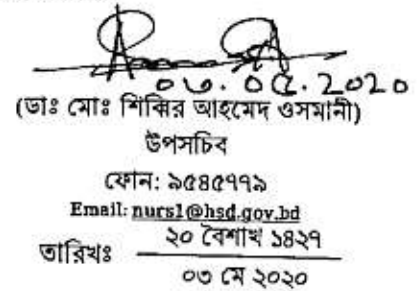 ০৩.০৫.2020
(ডাঃ মোঃ শিব্বির আহমেদ ওসমানী)
উপসচিব
ফোন: ৯৫৪৫৭৭৯
Email: nurs1@hsd.gov.bd
তারিখঃ ২০ বৈশাখ ১৪২৭
০৩ মে ২০২০